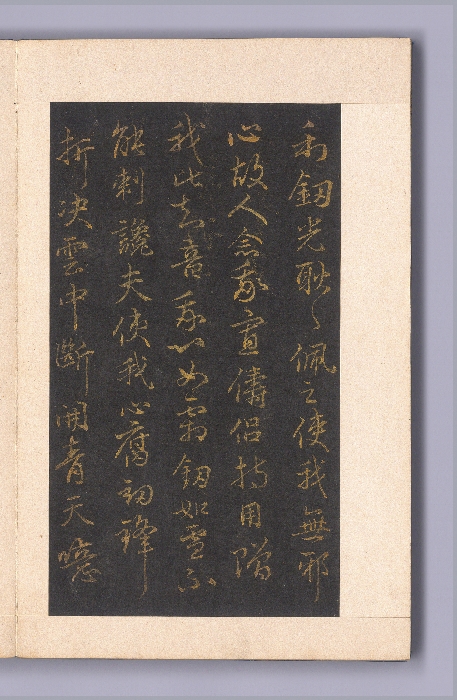 利釼光耿〻佩之使我無邪
心故人念我寡儔侶持用贈
我比知音我心如霜釼如雪不
能刺讒夫使我心腐釼鋒
折決雲中斷開青天噫